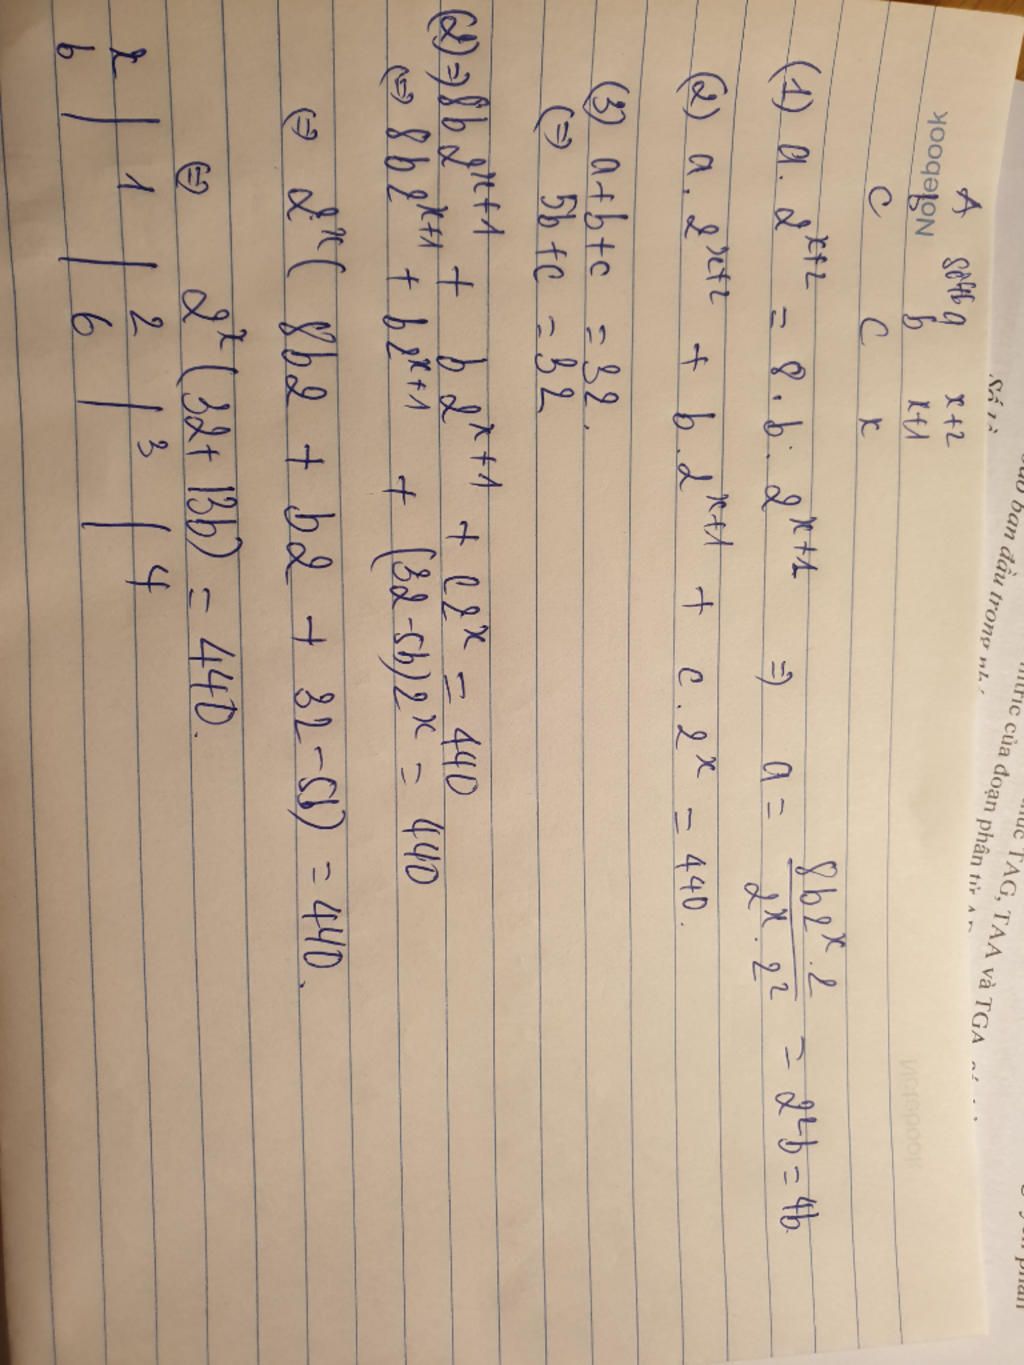 Notebook
A số tb a x+2
B b x+1
C C x
(1) a. 2^{x+2} = 8. b. 2^{x+1} ⇒ a = \frac{8b2^x.2}{2^x.2^2} = 2^2b = 4b
(2) a. 2^{x+2} + b. 2^{x+1} + c. 2^x = 440.
(3) a+b+c = 32.
(⇒) 5b+c = 32
(2) ⇒ 8b2^{x+1} + b2^{x+1} + c2^x = 440
(⇒) 8b2^{x+1} + b2^{x+1} + (32-5b)2^x = 440
(⇒) 2^x( 8b2 + b2 + 32-5b) = 440.
(⇒) 2^x(32+13b) = 440.
x | 1 | 2 | 3 | 4
b | | 6 | |
ban đầu trong
của đoạn phân tử
TAG, TAA và TGA
phân
Notebook